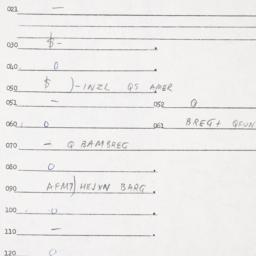 021 –
030 $-
040 0
050 $ )-INZL QS AMER
051 – 052 Q
060 0 061 BREG+ QFUN
070 – Q BAMBREG
080 0
090 AFMT) HEJXN BARG
100 0
110 –
120 0